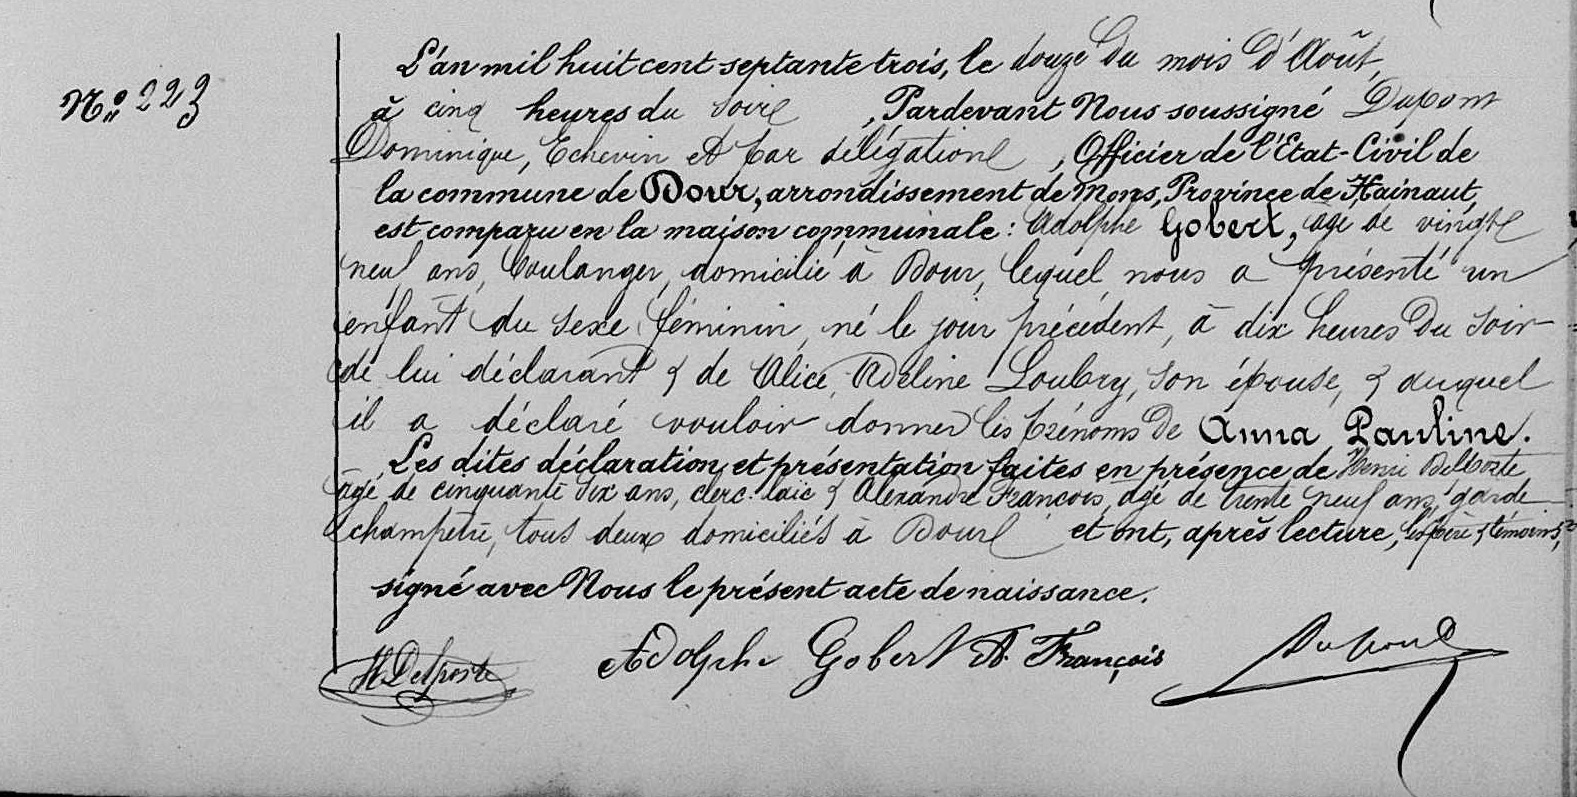 L'an mil huit cent septante trois, le douze du mois d'Août,
N° 223
à cinq heures du soir, Pardevant Nous soussigné Dupont
Dominique, Echevin et par délégation, Officier de l'Etat-Civil de
la commune de Dour, arrondissement de Mons, Province de Hainaut,
est comparu en la maison communale: Adolphe Gobert, âgé de vingt
neuf ans, boulanger, domicilié à Dour, lequel nous a présenté un
enfant du sexe féminin, né le jour précédent, à dix heures du soir
de lui déclarant & de Alice Adeline Loubry, son épouse, & auquel
il a déclaré vouloir donner les prénoms de Anna Pauline.
Les dites déclaration et présentation faites en présence de Henri Delporte
âgé de cinquante six ans, clerc laïc & Alexandre François, âgé de trente neuf ans, garde
champêtre, tous deux domiciliés à Dour et ont, après lecture, les père & témoins,
signé avec Nous le présent acte de naissance.
H Delporte Adolphe Gobert A. François Dupont